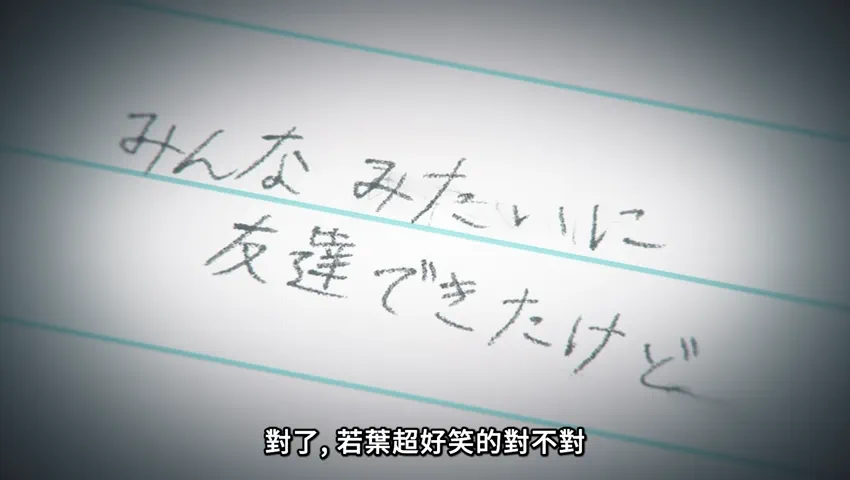 みんな みたいに
友達できたけど
對了, 若葉超好笑的對不對